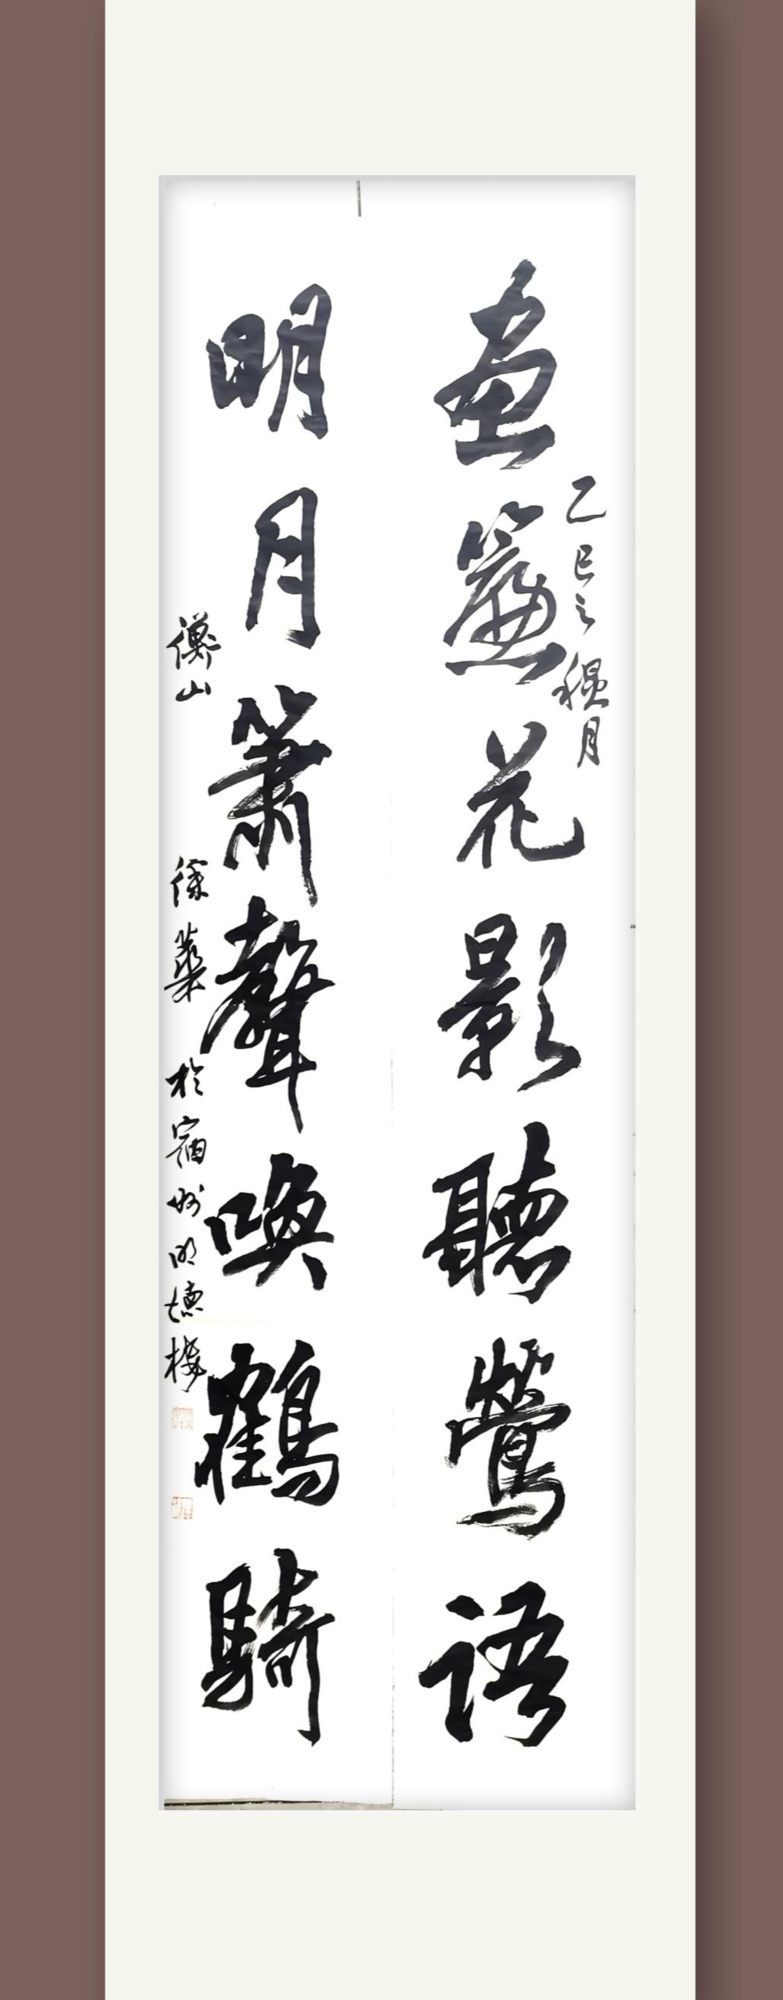 畫簾花影聽鶯語
乙巳之
月
明月簫聲喚鶴騎
衡山
徐
於宿州明德樓